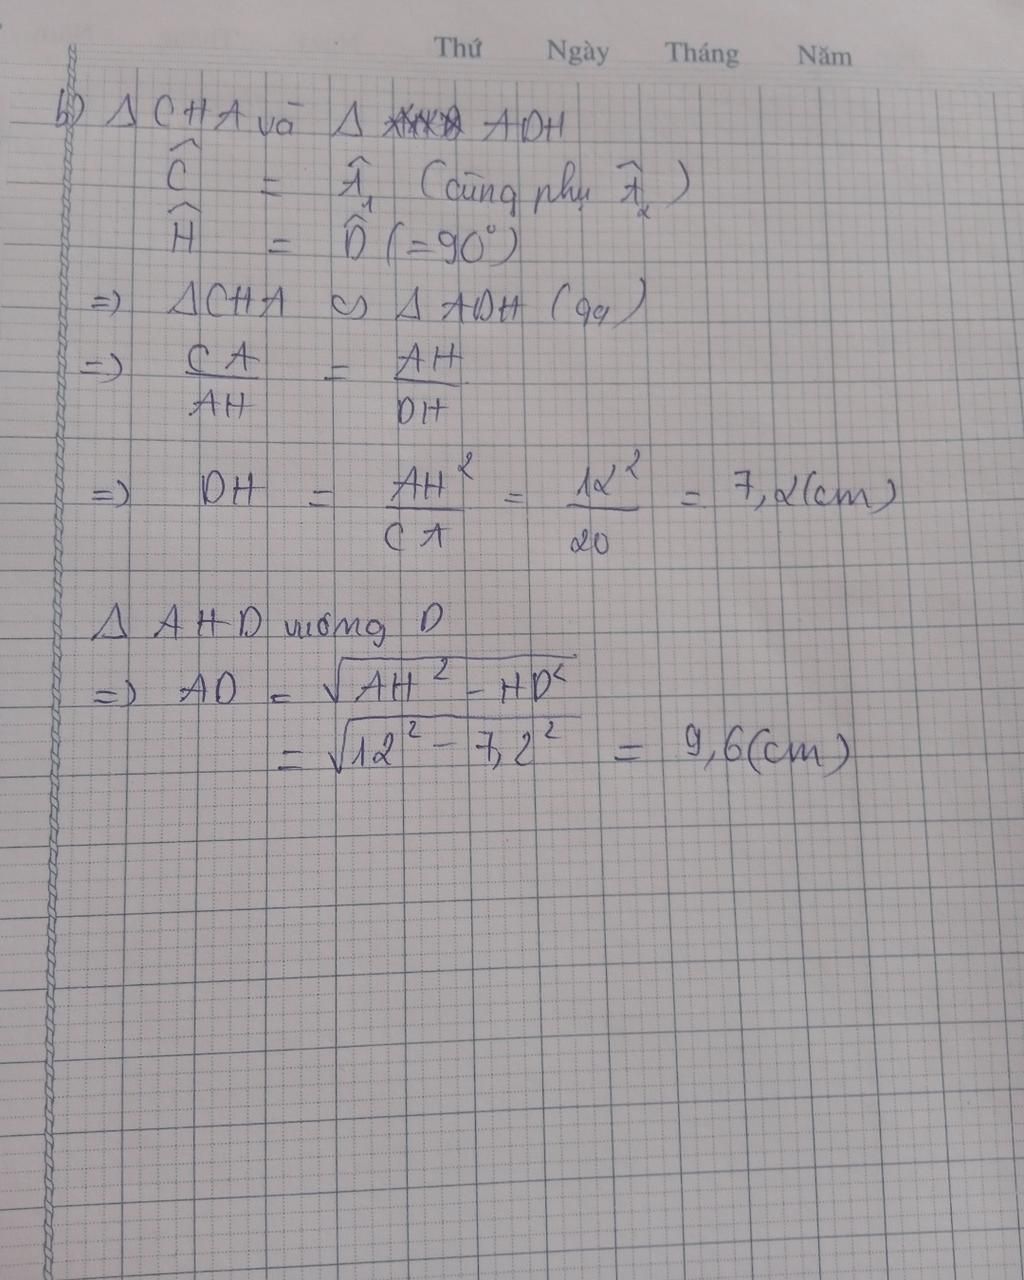 Thứ Ngày Tháng Năm
b) Δ CHA và Δ ADH
Ĉ = Â₁ (cùng phụ Â₂)
Ĥ = D̂ (=90°)
=> ΔCHA ∽ Δ ADH (gg)
=> CA/AH = AH/DH
=> DH = AH²/CA = 12²/20 = 7,2(cm)
Δ AHD vuông D
=> AD = √(AH² - HD²)
= √(12² - 7,2²) = 9,6(cm)